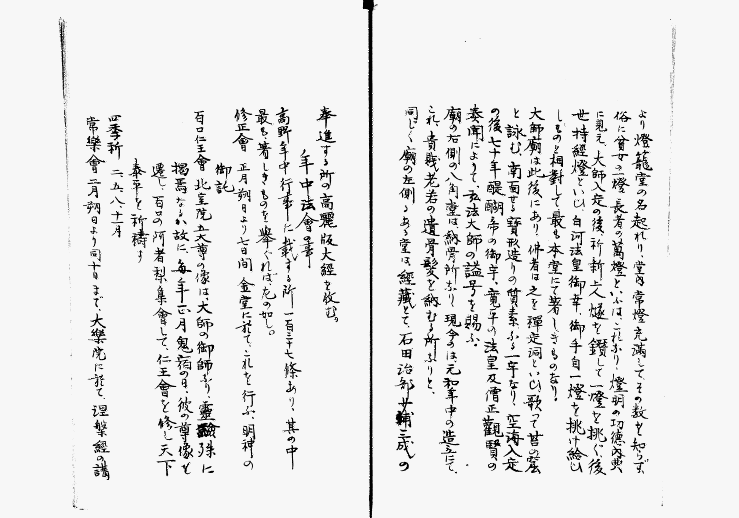 より燈籠堂の名起れり、堂内常燈充滿してその数を知らず、
俗に貧女の一燈長者の萬燈といふは、これなり、燈明の功德内典
に見え、大師入定の後、祈新上人燧を鑽して一燈を挑ぐ、後
世持經燈といひ、白河法皇御幸、御手自一燈を挑げ給ひ
しものと相對して最も本堂にて著しきものなり、
大師廟は此後にあり、俳者は之を禪定洞といひ、歌って昔の窟
と詠む、南面せる寶形造りの質素なる一宇なり、空海入定
の後七十年醍醐帝の御宇、寛平の法皇及僧正觀賢の
奏聞によりて、弘法大師の諡号を賜ふ、
廟の右側の八角堂は納骨所なり、現今のは元和年中の造立にて、
これ貴賤老若の遺骨髪を納むる所なりと、
同じく廟の左側にある堂は、經藏とて、石田治部少輔三成の
奉進する所の高麗版大經を收む。
年中法會の事
高野年中行事に載する所一百三十七條あり、其の中
最も著しきものを擧ぐれば左の如し。
修正會 正月朔日より七日間 金堂に於て、これを行ふ、明神の
御託
百口仁王會 北室院五大尊の像は、大師の御師なり、靈驗殊に
揭焉なるが故に、毎年正月鬼宿の日、彼の尊像を
遷し、百口の阿闍梨集會して、仁王會を修し天下
泰平を祈禱す
四季祈 二、五、八、十一月
常樂會 二月朔日より同十日まで、大樂院に於て、涅槃經の講